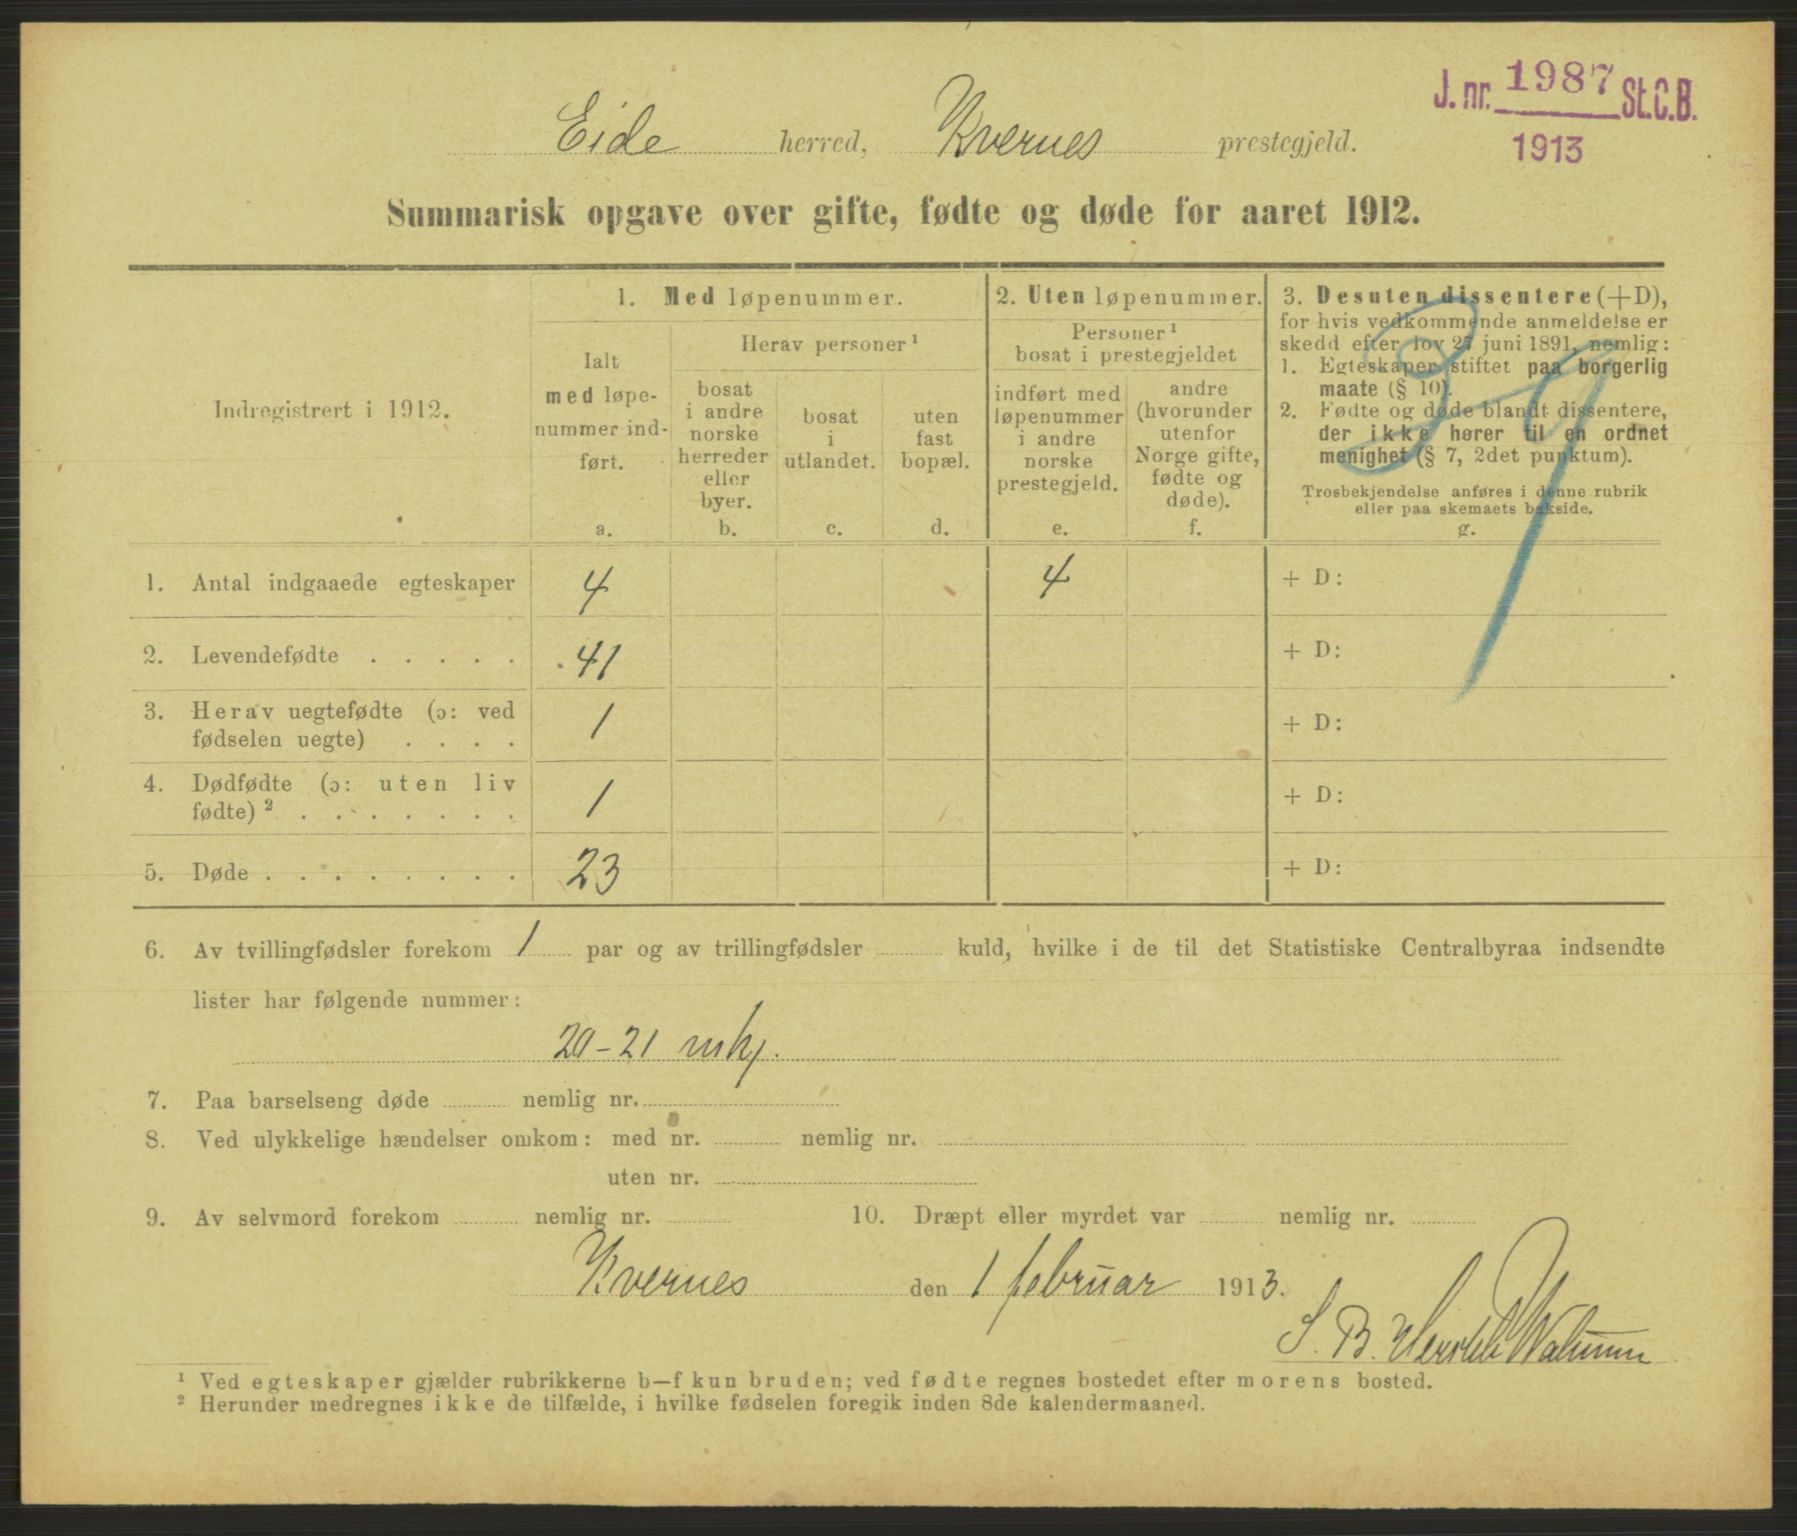 J. nr. 1987 St.C.B.
1913
Eide herred, Kvernes prestegjeld.
Summarisk opgave over gifte, fødte og døde for aaret 1912.
Indregistrert i 1912.
1. Med løpenummer.
Ialt
med løpe-
nummer ind-
ført.
a.
Herav personer ¹
bosat
i andre
norske
herreder
eller
byer.
b.
bosat
i
utlandet.
c.
uten
fast
bopæl.
d.
2. Uten løpenummer.
Personer ¹
bosat i prestegjeldet
indført med
løpenummer
i andre
norske
prestegjeld.
e.
andre
(hvorunder
utenfor
Norge gifte,
fødte og
døde).
f.
3. Desuten dissentere (+D),
for hvis vedkommende anmeldelse er
skedd efter lov 27 juni 1891, nemlig:
1. Egteskaper stiftet paa borgerlig
maate (§ 10).
2. Fødte og døde blandt dissentere,
der ikke hører til en ordnet
menighet (§ 7, 2det punktum).
Trosbekjendelse anføres i denne rubrik
eller paa skemaets bakside.
g.
1. Antal indgaaede egteskaper 4 4 + D:
2. Levendefødte . . . . . 41 + D:
3. Herav uegtefødte (ɔ: ved
fødselen uegte) . . . . 1 + D:
4. Dødfødte (ɔ: uten liv
fødte) ² . . . . . . . 1 + D:
5. Døde . . . . . . . . 23 + D:
6. Av tvillingfødsler forekom 1 par og av trillingfødsler kuld, hvilke i de til det Statistiske Centralbyraa indsendte
lister har følgende nummer:
20-21 mkj.
7. Paa barselseng døde nemlig nr.
8. Ved ulykkelige hændelser omkom: med nr. nemlig nr.
uten nr.
9. Av selvmord forekom nemlig nr. 10. Dræpt eller myrdet var nemlig nr.
Kvernes den 1 februar 1913.
S. B. Hersleb Walnum
¹ Ved egteskaper gjælder rubrikkerne b—f kun bruden; ved fødte regnes bostedet efter morens bosted.
² Herunder medregnes ikke de tilfælde, i hvilke fødselen foregik inden 8de kalendermaaned.